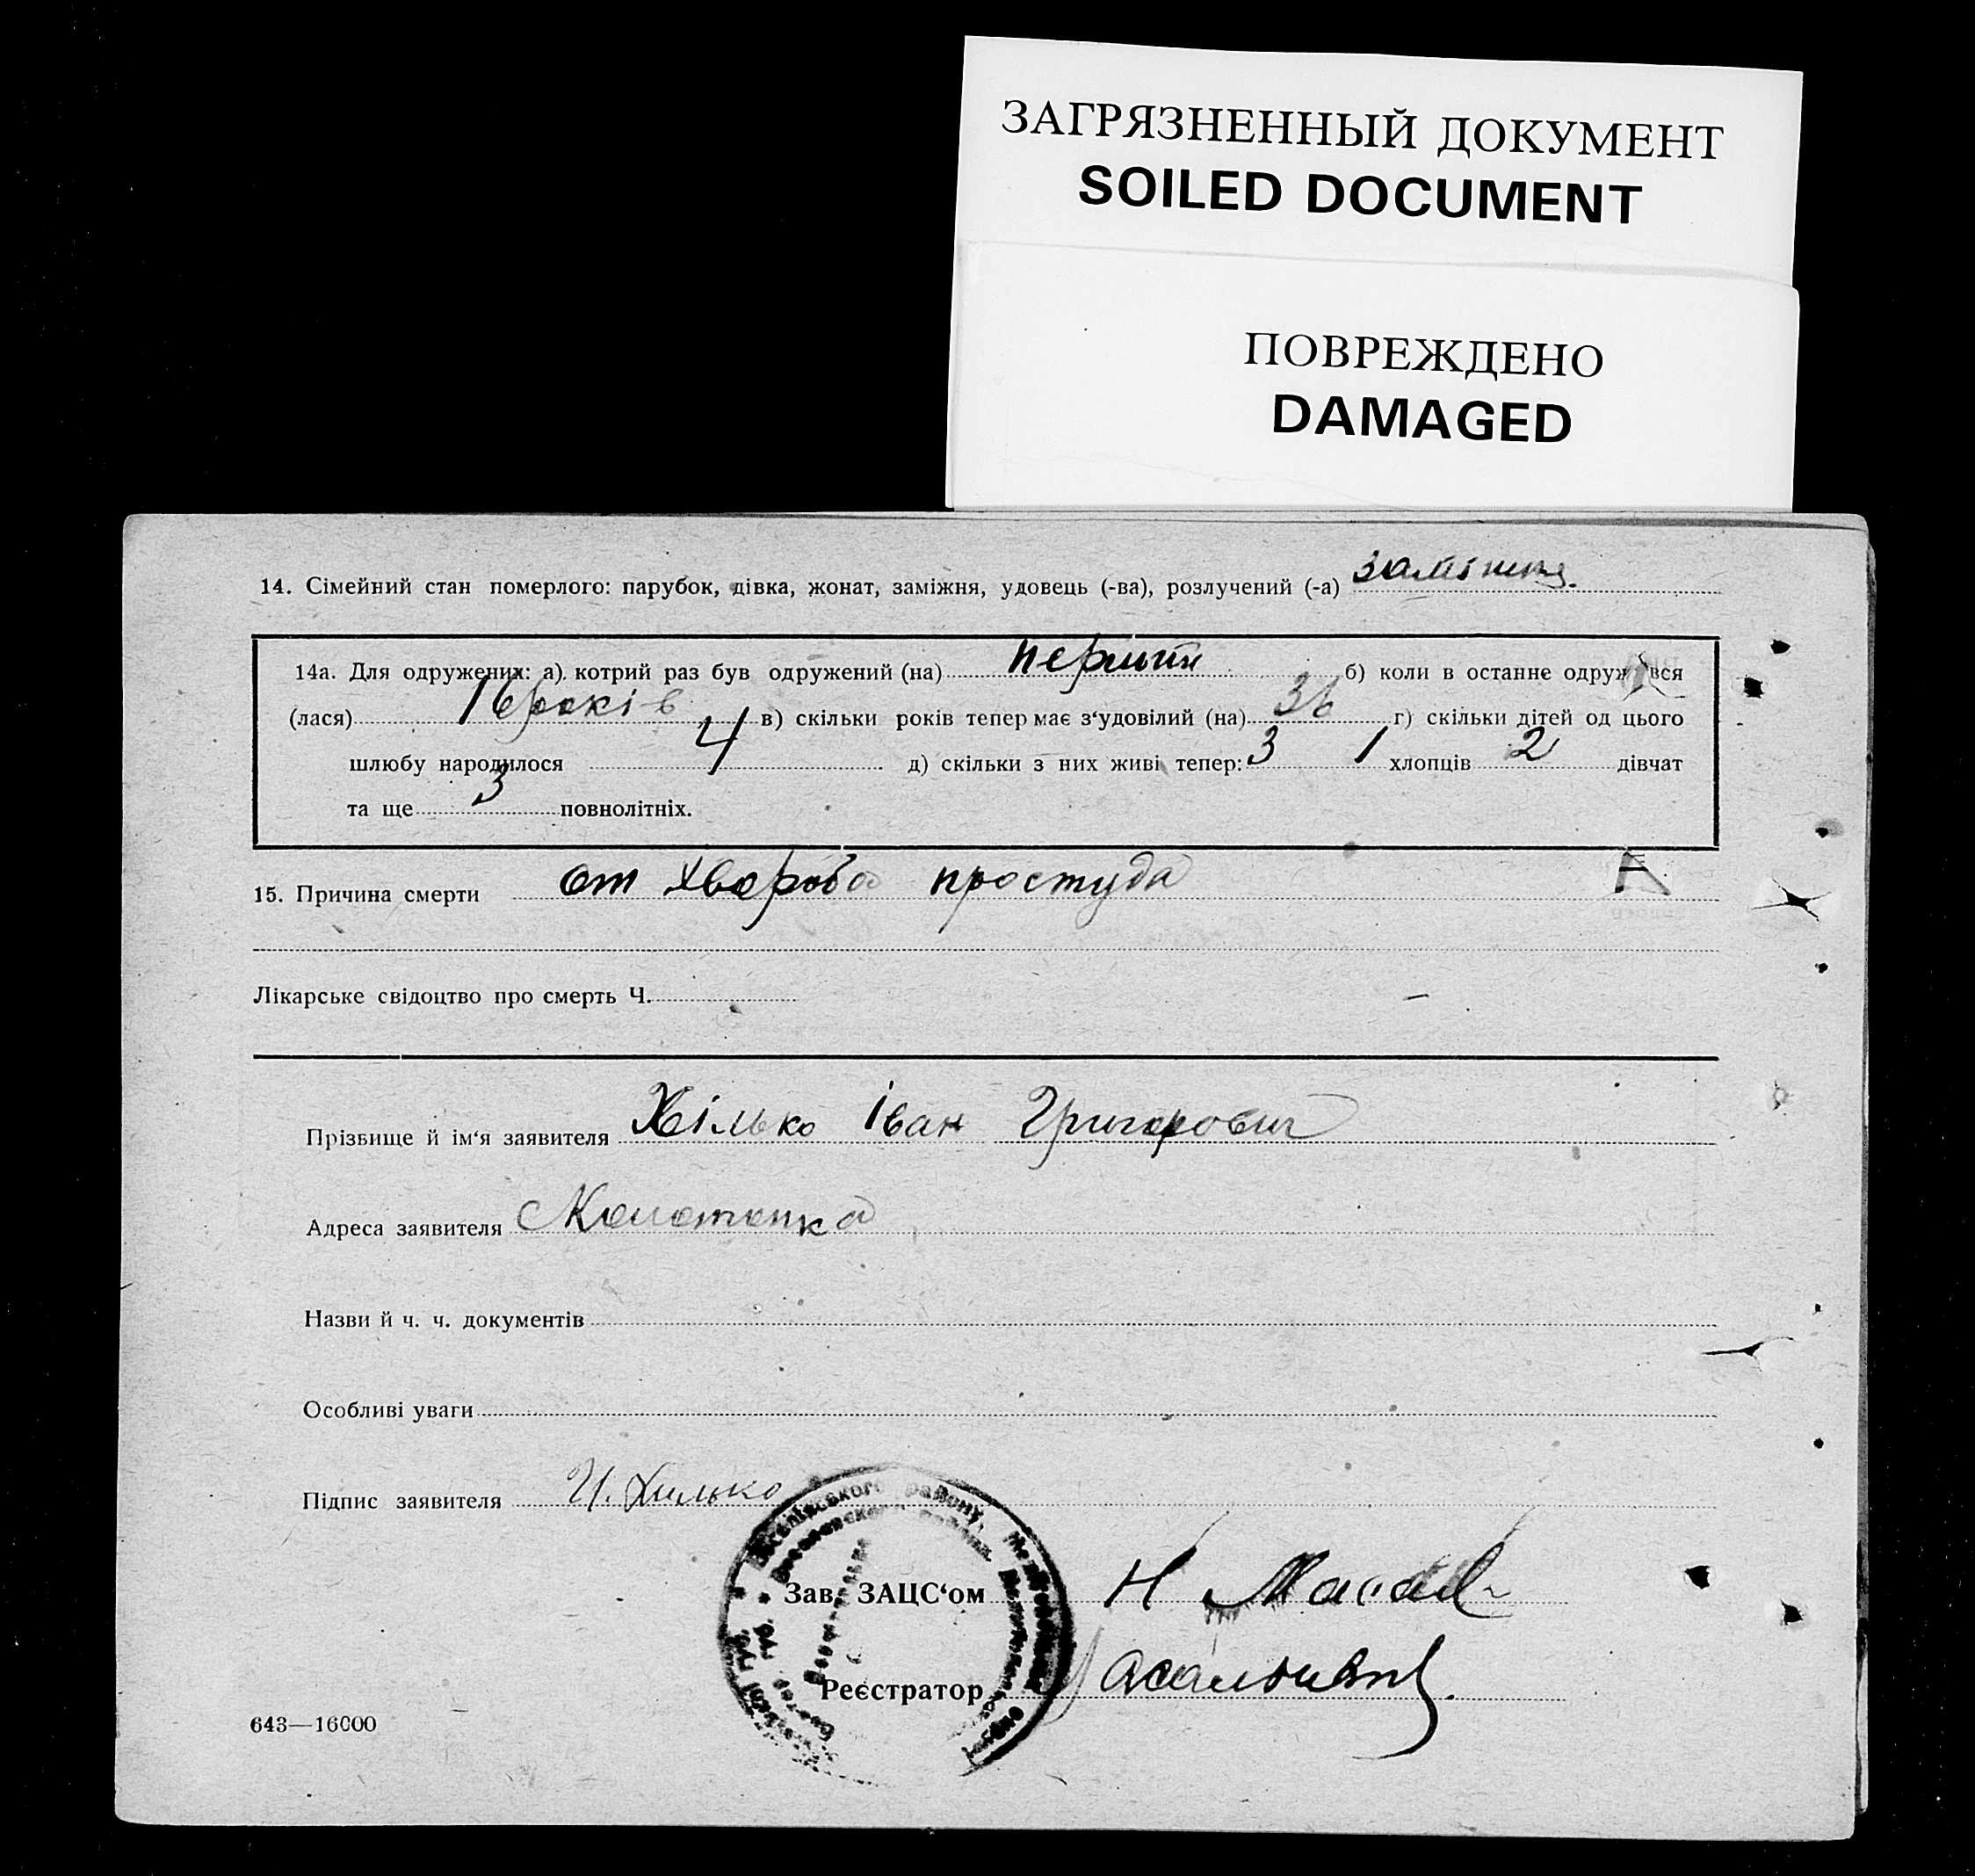 ЗАГРЯЗНЕННЫЙ ДОКУМЕНТ
SOILED DOCUMENT
ПОВРЕЖДЕНО
DAMAGED
14. Сімейний стан померлого: парубок, дівка, жонат, заміжня, удовець (-ва), розлучений (-а) заміжня.
14а. Для одружених: а). котрий раз був одружений (на) первий б) коли в останнє одружився
(лася) 16 років в) скільки років тепер має з‘удовілий (на) 36 г) скільки дітей од цього
шлюбу народилося 4 д) скільки з них живі тепер: 3 1 хлопців 2 дівчат
та ще 3 повнолітніх.
15. Причина смерти от хвороба простуда А
Лікарське свідоцтво про смерть Ч. –
Прізвище й ім‘я заявителя Хілько Іван Григорович
Адреса заявителя
Назви й ч. ч. документів
Особливі уваги
Підпис заявителя И. Хилько
району,
Зав. ЗАЦС‘ом Н
Реєстратор
643—16000